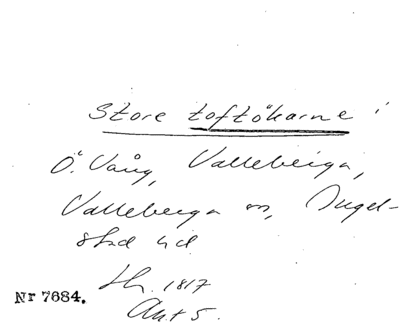 Store toftökarne i
Ö. Vång, Valleberga,
Valleberga sn, Ingel-
stad hd
Sk. 1817
Akt 5.
Nr 7684.